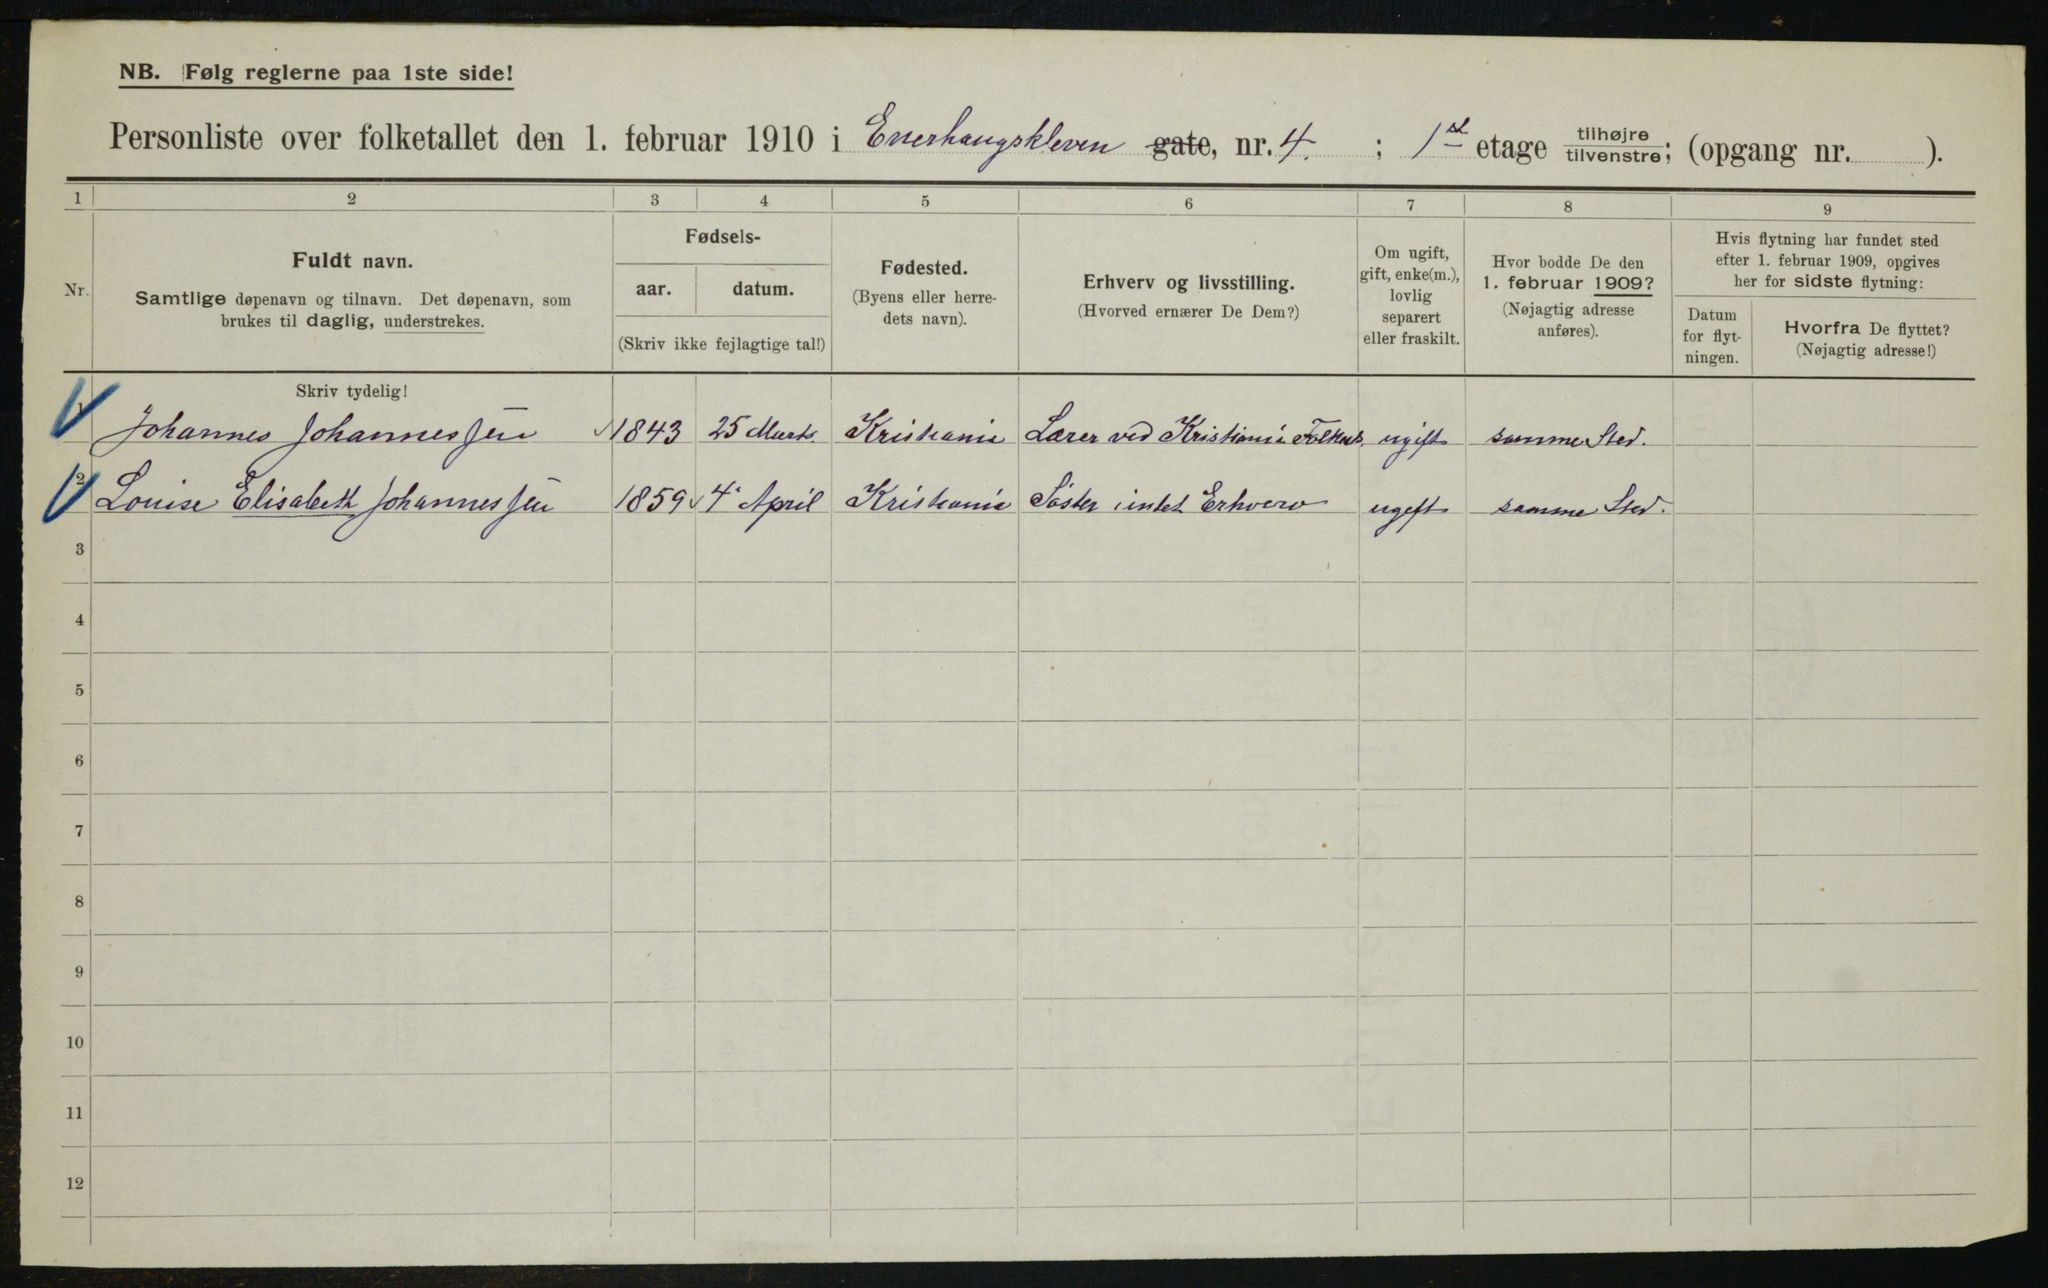 NB. Følg reglerne paa 1ste side!
Personliste over folketallet den 1. februar 1910 i Enerhaugskleven gate, nr. 4. ; 1st etage tilhøjre/tilvenstre; (opgang nr. ).
1 2 3 4 5 6 7 8 9
Nr.
Fuldt navn.
Samtlige døpenavn og tilnavn. Det døpenavn, som
brukes til daglig, understrekes.
Fødsels-
aar. datum.
(Skriv ikke fejlagtige tal!)
Fødested.
(Byens eller herre-
dets navn).
Erhverv og livsstilling.
(Hvorved ernærer De Dem?)
Om ugift,
gift, enke(m.),
lovlig
separert
eller fraskilt.
Hvor bodde De den
1. februar 1909?
(Nøjagtig adresse
anføres).
Hvis flytning har fundet sted
efter 1. februar 1909, opgives
her for sidste flytning:
Datum
for flyt-
ningen.
Hvorfra De flyttet?
(Nøjagtig adresse!)
Skriv tydelig!
1 Johannes Johannessen 1843 25 Marts. Kristiania Lærer ved Kristiania Folkes. ugift samme Sted.
2 Louise Elisabeth Johannessen 1859 4' April Kristiania Søster intet Erhverv ugift samme Sted.
3
4
5
6
7
8
9
10
11
12